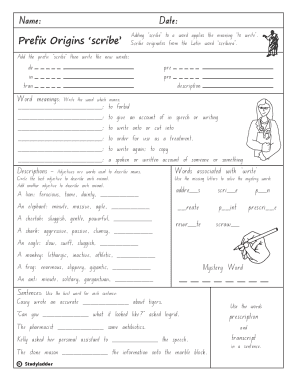 Name: Date:
Prefix Origins 'scribe'
Adding 'scribe' to a word applies the meaning 'to write'.
Scribe originates from the Latin word 'scribere'.
Add the prefix 'scribe' then write the new words.
de _ _ _ _ _ _
pre _ _ _ _ _ _
in _ _ _ _ _ _
pro _ _ _ _ _ _
tran _ _ _ _ _
description
Word meanings Write the word which means:
: to forbid
: to give an account of in speech or writing
: to write onto or cut into
: to order for use as a treatment.
: to write again: to copy
: a spoken or written account of someone or something
Descriptions - Adjectives are words used to describe nouns.
Circle the best adjective to describe each animal.
Add another adjective to describe each animal.
A lion: ferocious, tame, dainty,
An elephant: minute, massive, agile,
A cheetah: sluggish, gentle, powerful,
A shark: aggressive, passive, clumsy,
An eagle: slow, swift, sluggish,
A monkey: lethargic, inactive, athletic,
A frog: enormous, slippery, gigantic,
An ant: minute, solitary, gargantuan,
Words associated with write
Use the missing letters to solve the mystery word.
addre__s scri__e p__n
__reate p__int prescr__e
recor__ scraw__
Mystery Word
Sentences Use the best word for each sentence.
Casey wrote an accurate about tigers.
"Can you what it looked like?" asked Ingrid.
The pharmacist some antibiotics.
Kelly asked her personal assistant to the speech.
The stone mason the information onto the marble block.
Use the words
prescription
and
transcript
in a sentence.
© Studyladder